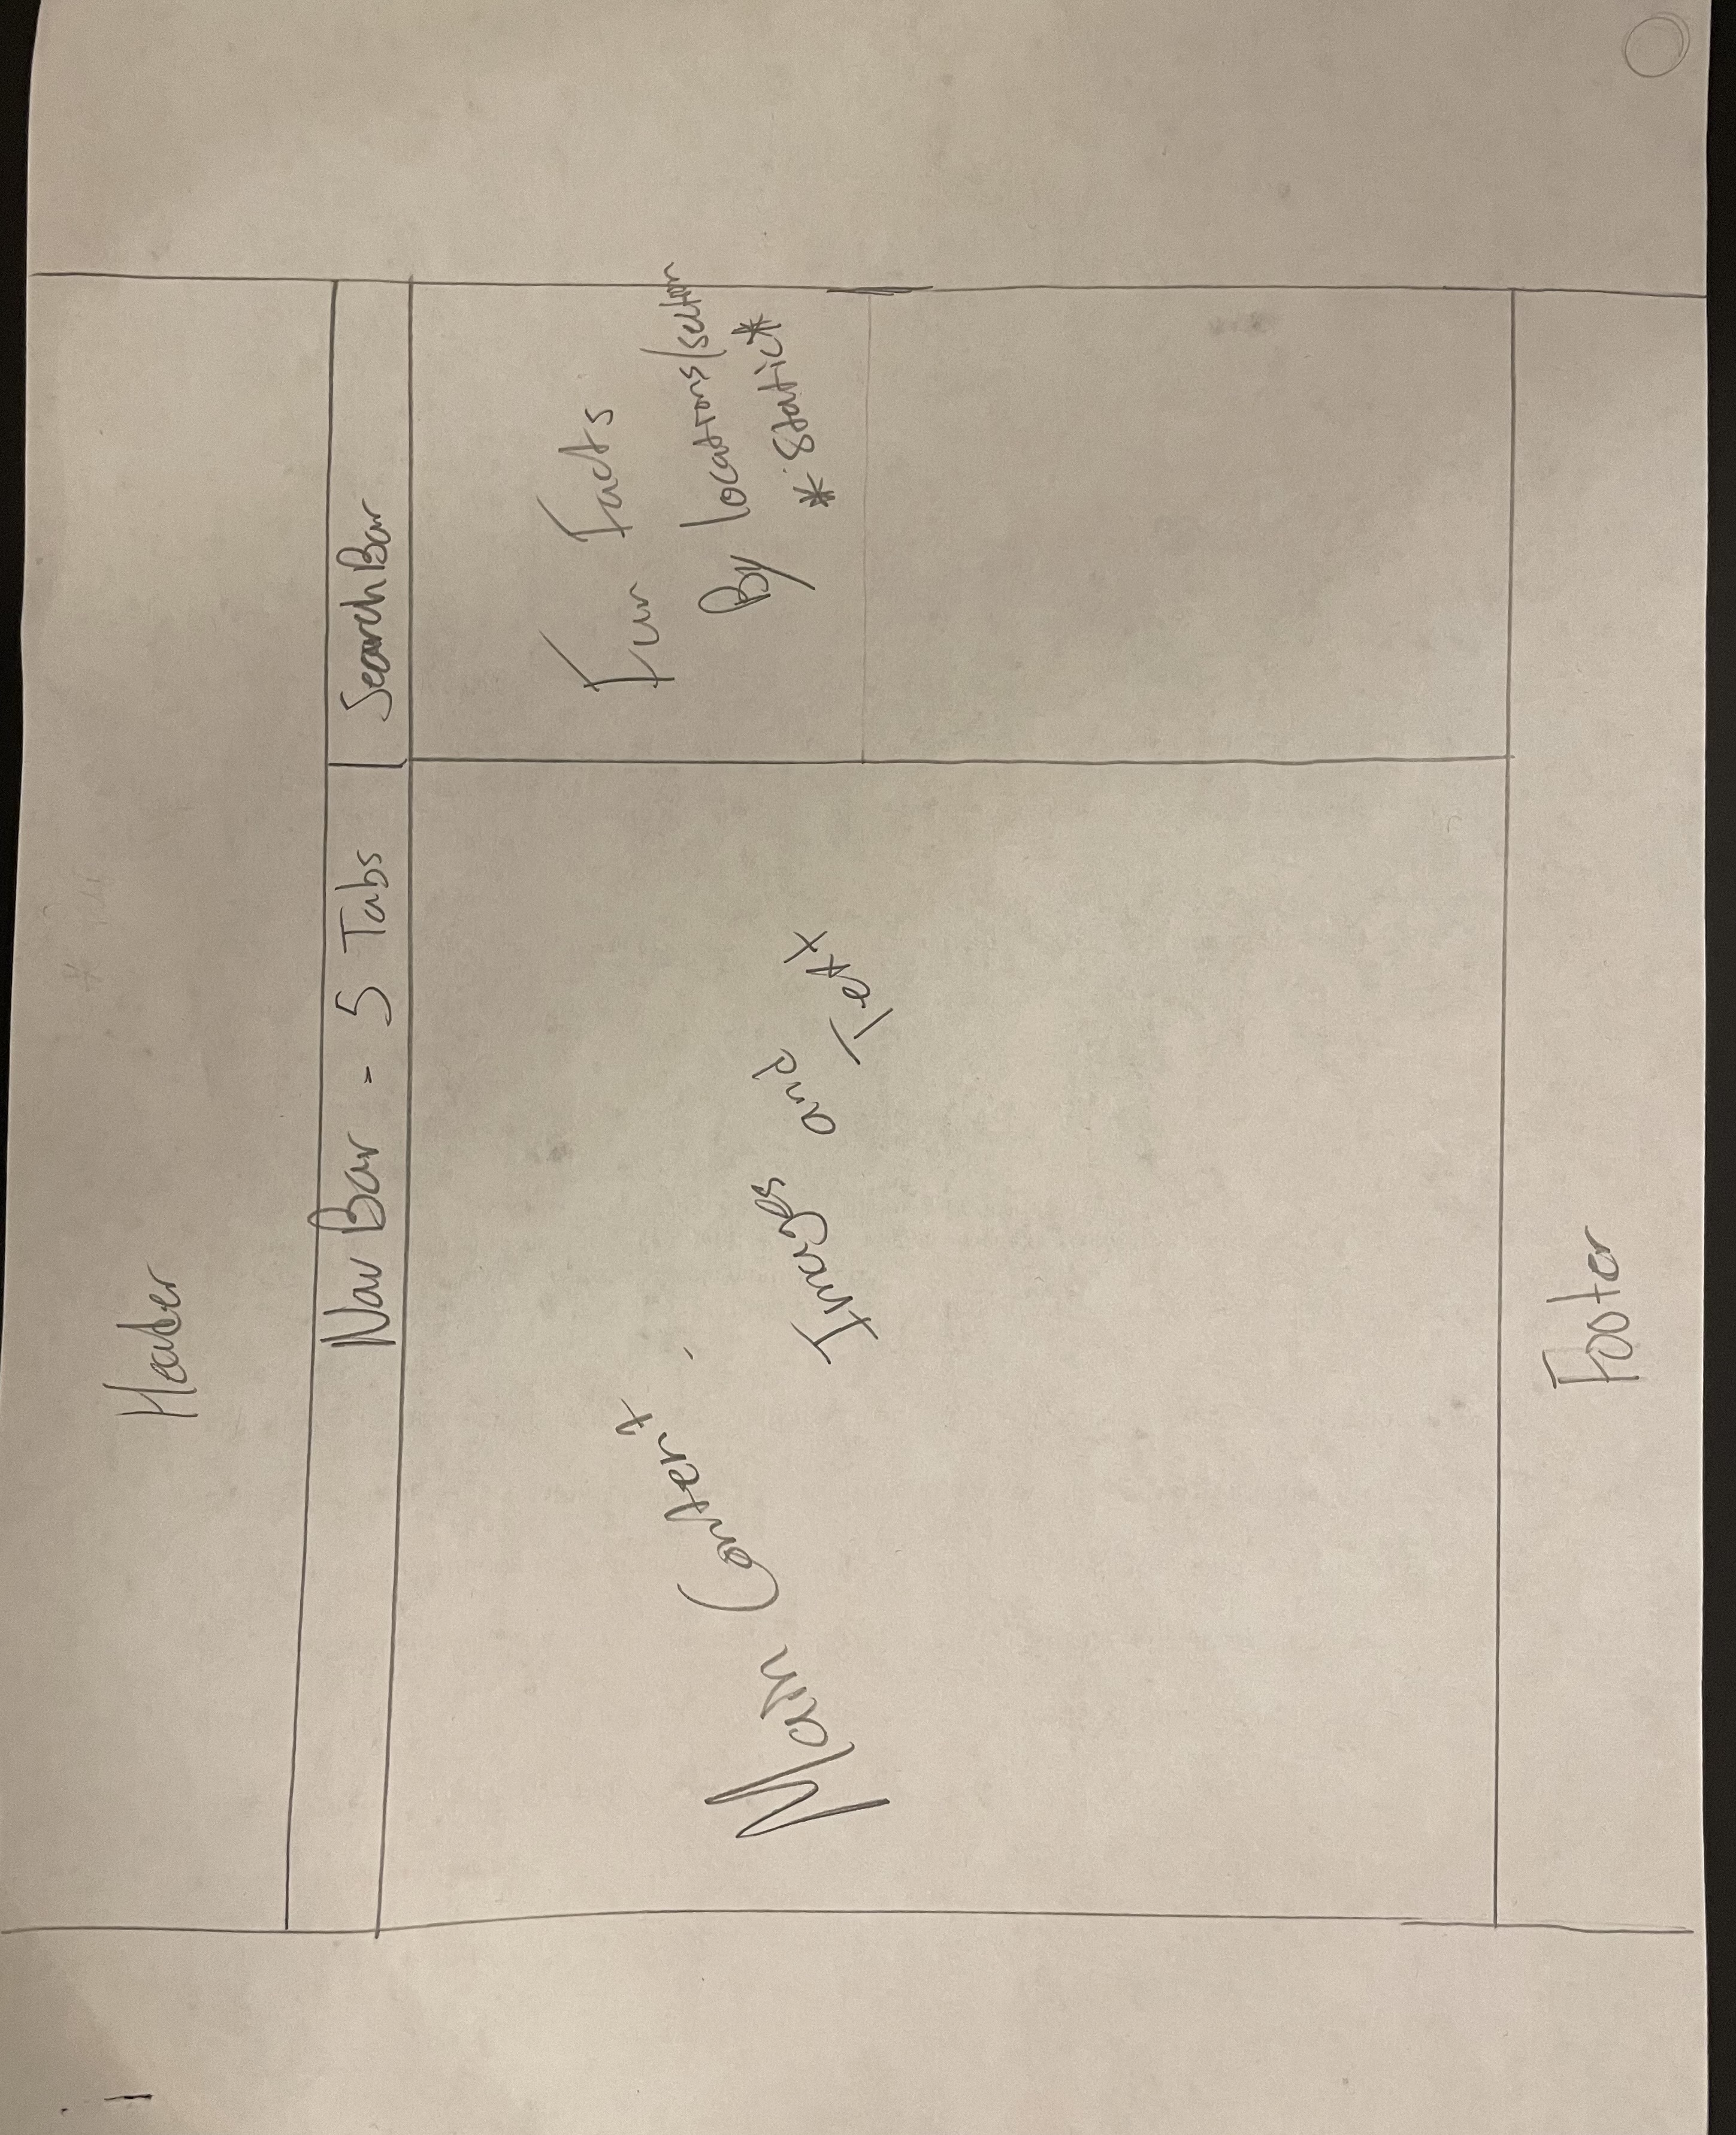 Header
Nav Bar - 5 Tabs
Search Bar
Main Content -
Images and Text
Fun Facts
By locations/section
*Static*
Footer